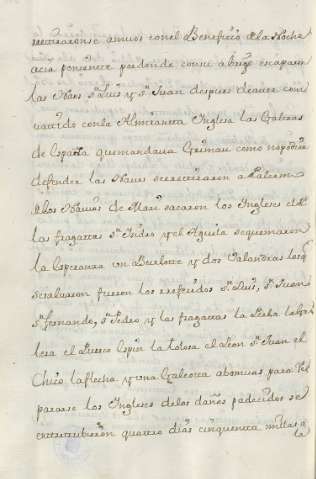 retiraronse ambos con el Beneficio de la Noche
acia poniente por donde con su abrigo escaparon
las Naves Sn. Luis y Sn. Juan despues de aver com
vatido con la Almiranta Inglesa las Galeras
de España que mandava Grimau como no podian
defender las Naves se retiraron a Palerm
de los Navios de Mari sacaron los Ingleses el
las fragatas Sn. Isidro y el Aguila se quemaron
la Esperanza un Burlote y dos Valandras los q
se salvaron fueron los referidos Sn. Luis, Sn. Juan
Sn. Fernando, Sn. Pedro y las fragatas la Perla
el Puerco Espin la Tolosa el Leon Sn. Juan el
Chico la flecha y una Galeota a bomvas para Re
pararse los Ingleses de los daños padecidos se
entretubieron quatro dias cinquenta millas a
la